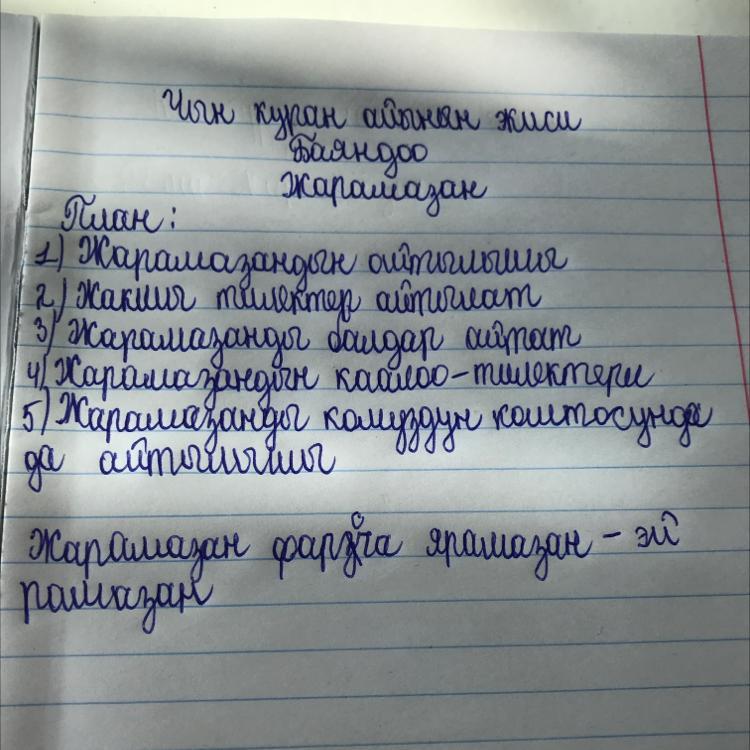 Чын куран айынын жиси
Баяндоо
Жарамазан
План:
1) Жарамазандын айтылышы
2) Жакшы тилектер айтылат
3) Жарамазанды балдар айтат
4) Жарамазандын каалоо-тилектери
5) Жарамазанды комуздун коштосунда
да айтылышы
Жарамазан фарсча ярамазан - эй
рамазан